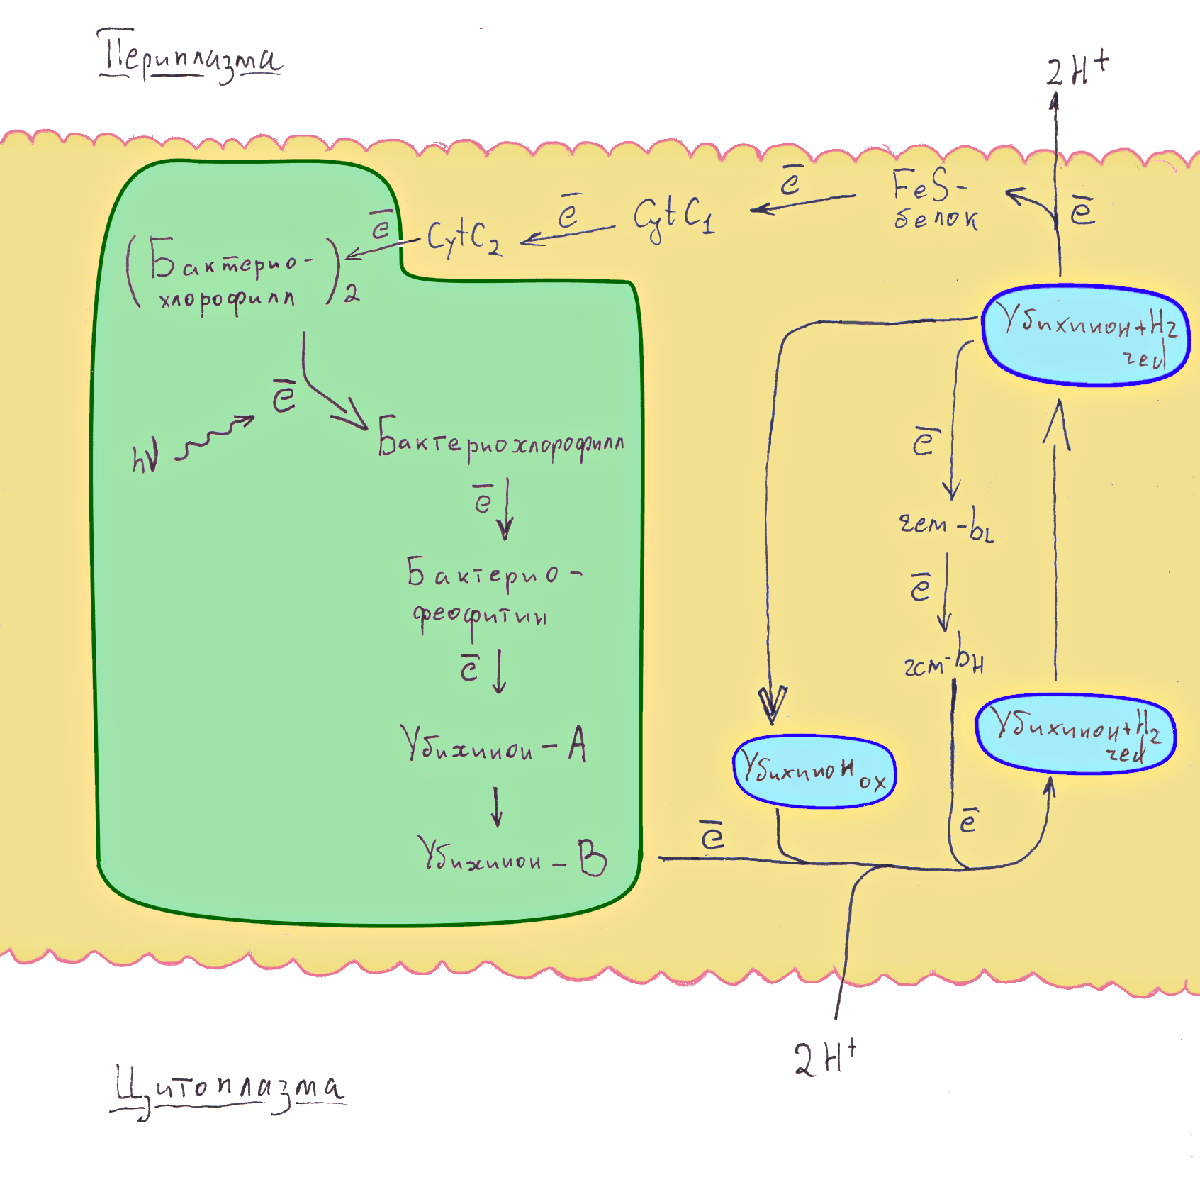 Периплазма
2H⁺
ē
FeS-
белок
ē
ē
CytC₁
ē
CytC₂
(Бактерио-
хлорофилл)₂
Убихинон+H₂
red
ē
hν
Бактериохлорофилл
ē
ē
гем-bL
Бактерио-
феофитин
ē
ē
гем-bH
Убихинон+H₂
red
Убихинон-А
Убихинон ox
Убихинон-В
ē
ē
2H⁺
Цитоплазма